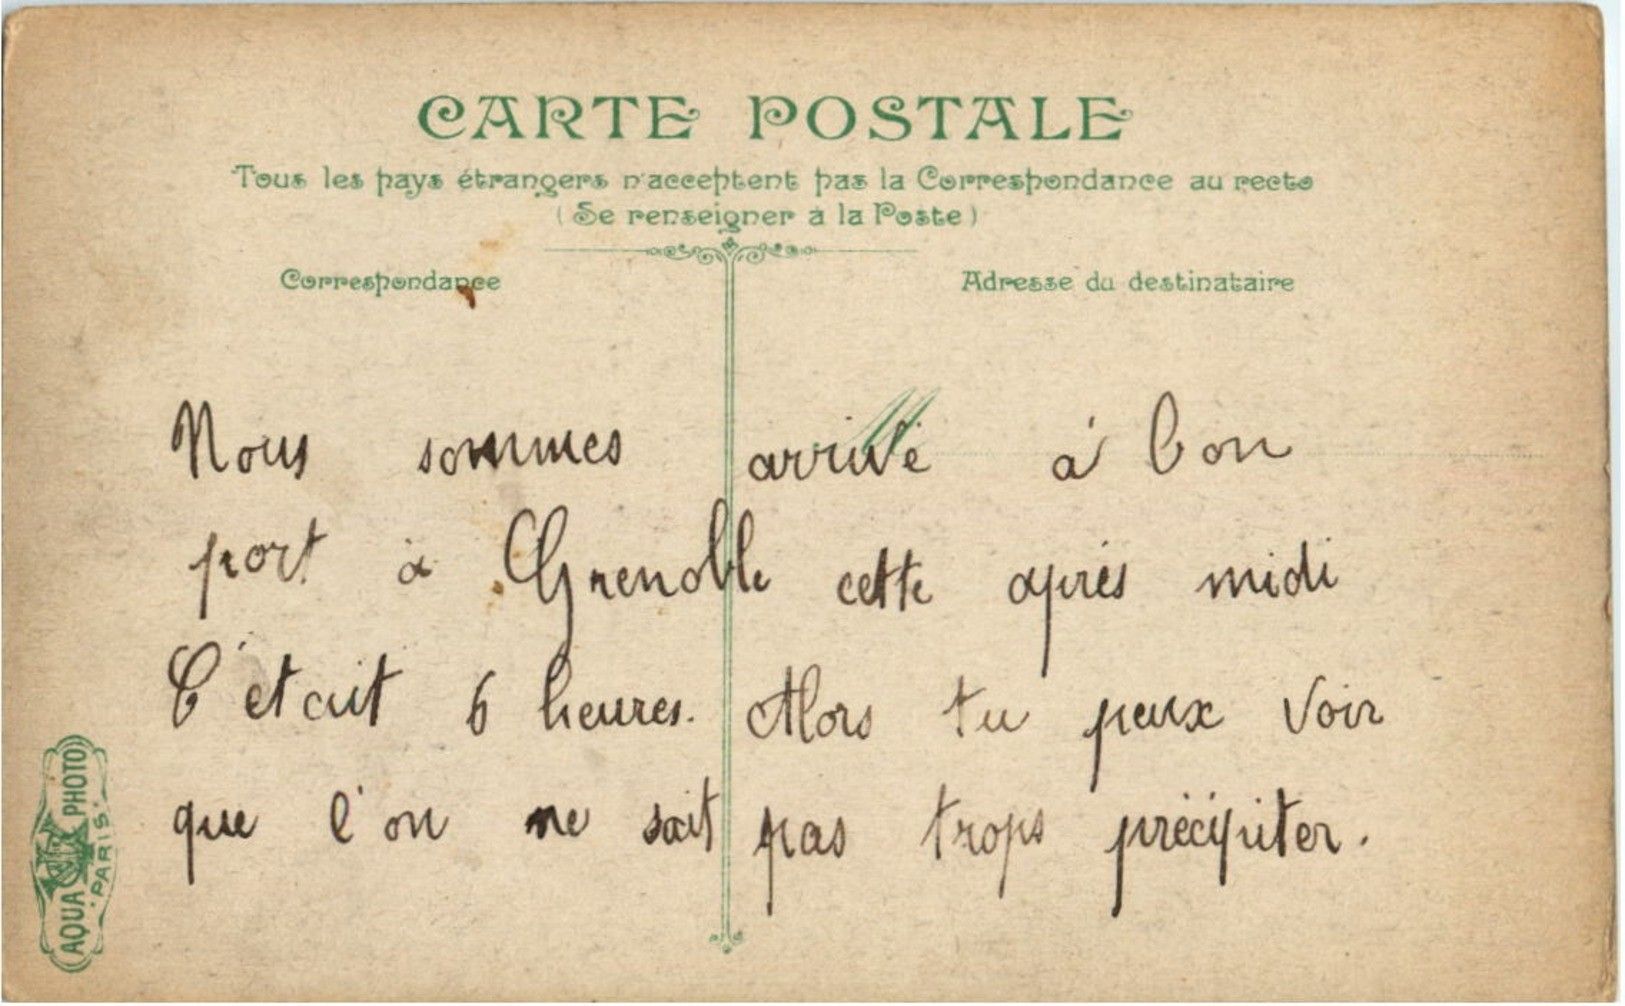 CARTE POSTALE
Tous les pays étrangers n'acceptent pas la Correspondance au recto
(Se renseigner à la Poste)
Correspondance
Adresse du destinataire
Nous sommes arrivé à bon
port à Grenoble cette après midi
C'était 6 heures. Alors tu peux voir
que l'on ne sait pas trops précipiter.
AQUA PHOTO
PARIS